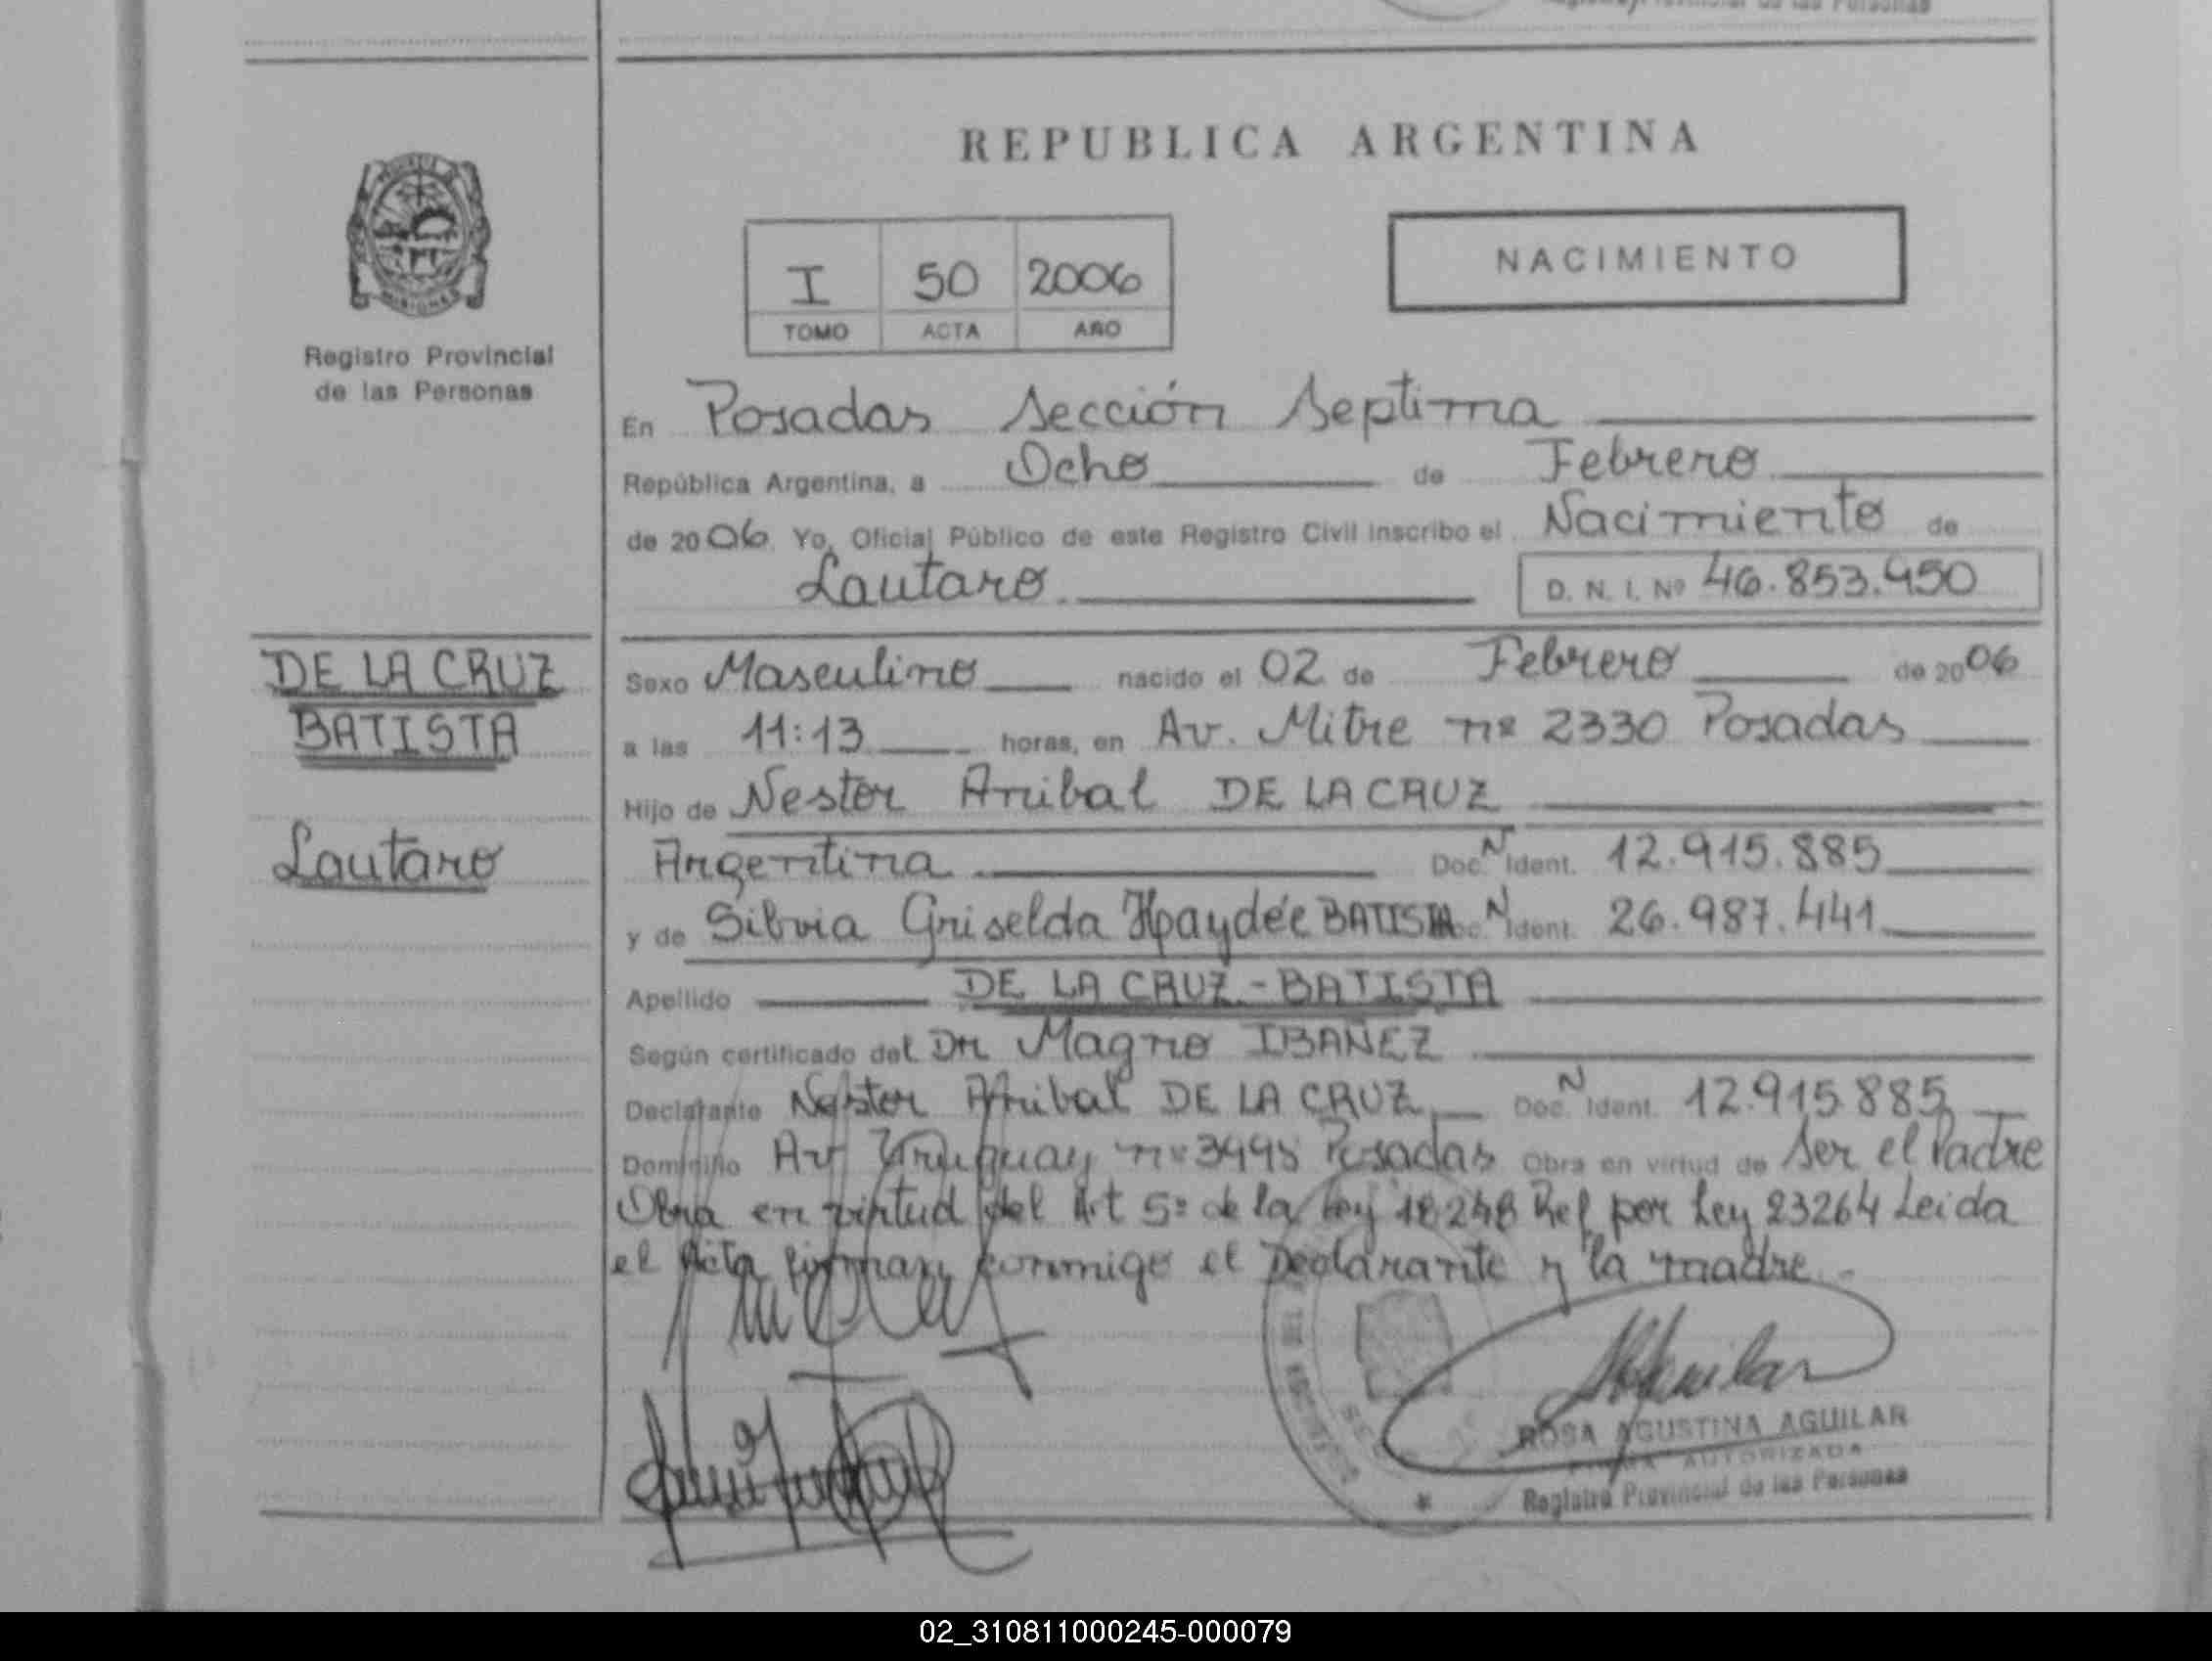 Registro Provincial de las Personas
REPUBLICA ARGENTINA
MISIONES
Registro Provincial
de las Personas
I 50 2006
TOMO ACTA AÑO
NACIMIENTO
En Posadas Sección Septima
República Argentina, a Ocho de Febrero
de 2006 Yo, Oficial Público de este Registro Civil inscribo el Nacimiento de
Lautaro D. N. I. Nº 46.853.950
DE LA CRUZ
BATISTA
Lautaro
Sexo Masculino nacido el 02 de Febrero de 2006
a las 11:13 horas, en Av. Mitre nº 2330 Posadas
Hijo de Nestor Anibal DE LA CRUZ
Argentina Doc. N Ident. 12.915.885
y de Silvia Griselda Haydée BATISTA Doc. N Ident. 26.987.441
Apellido DE LA CRUZ - BATISTA
Según certificado del Dr Magno IBAÑEZ
Declarante Nestor Anibal DE LA CRUZ Doc. N Ident. 12.915.885
Domicilio Av Uruguay nº 3998 Posadas Obra en virtud de Ser el Padre
Obra en virtud del Art 5º de la Ley 18248 Ref por Ley 23264 Leida
el Acta firman conmigo el Declarante y la madre.
ROSA AGUSTINA AGUILAR
FIRMA AUTORIZADA
Registro Provincial de las Personas
02_310811000245-000079